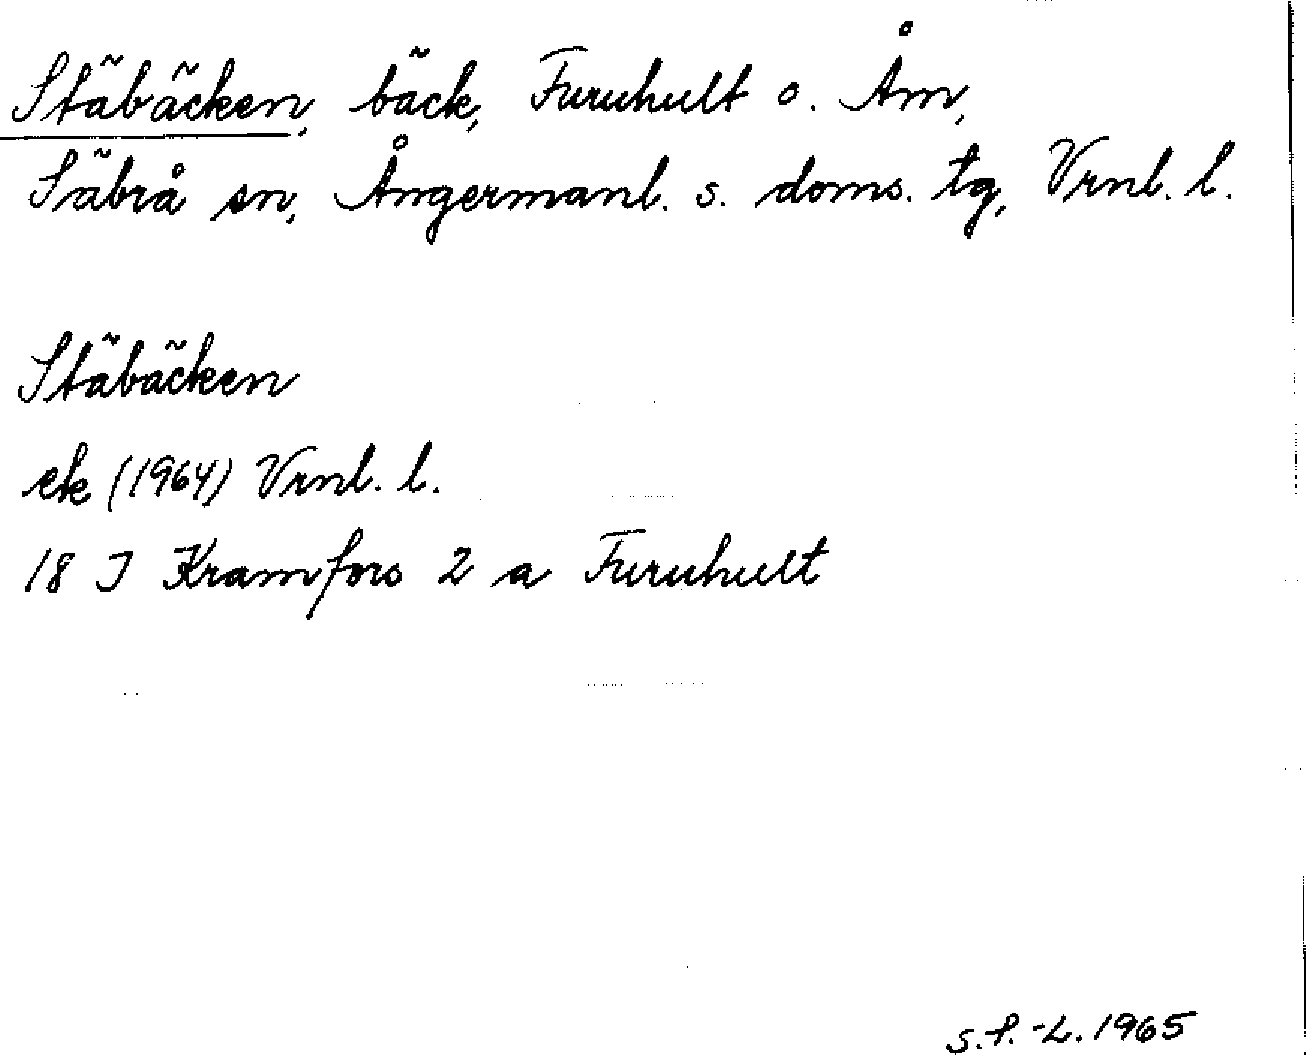 Stäbäcken, bäck, Furuhult o. Åm,
Säbrå sn, Ångermanl. s. doms. tg, Vrnl. l.
Stäbäcken
ek (1964) Vrnl. l.
18 I Kramfors 2 a Furuhult
S.P.-L. 1965